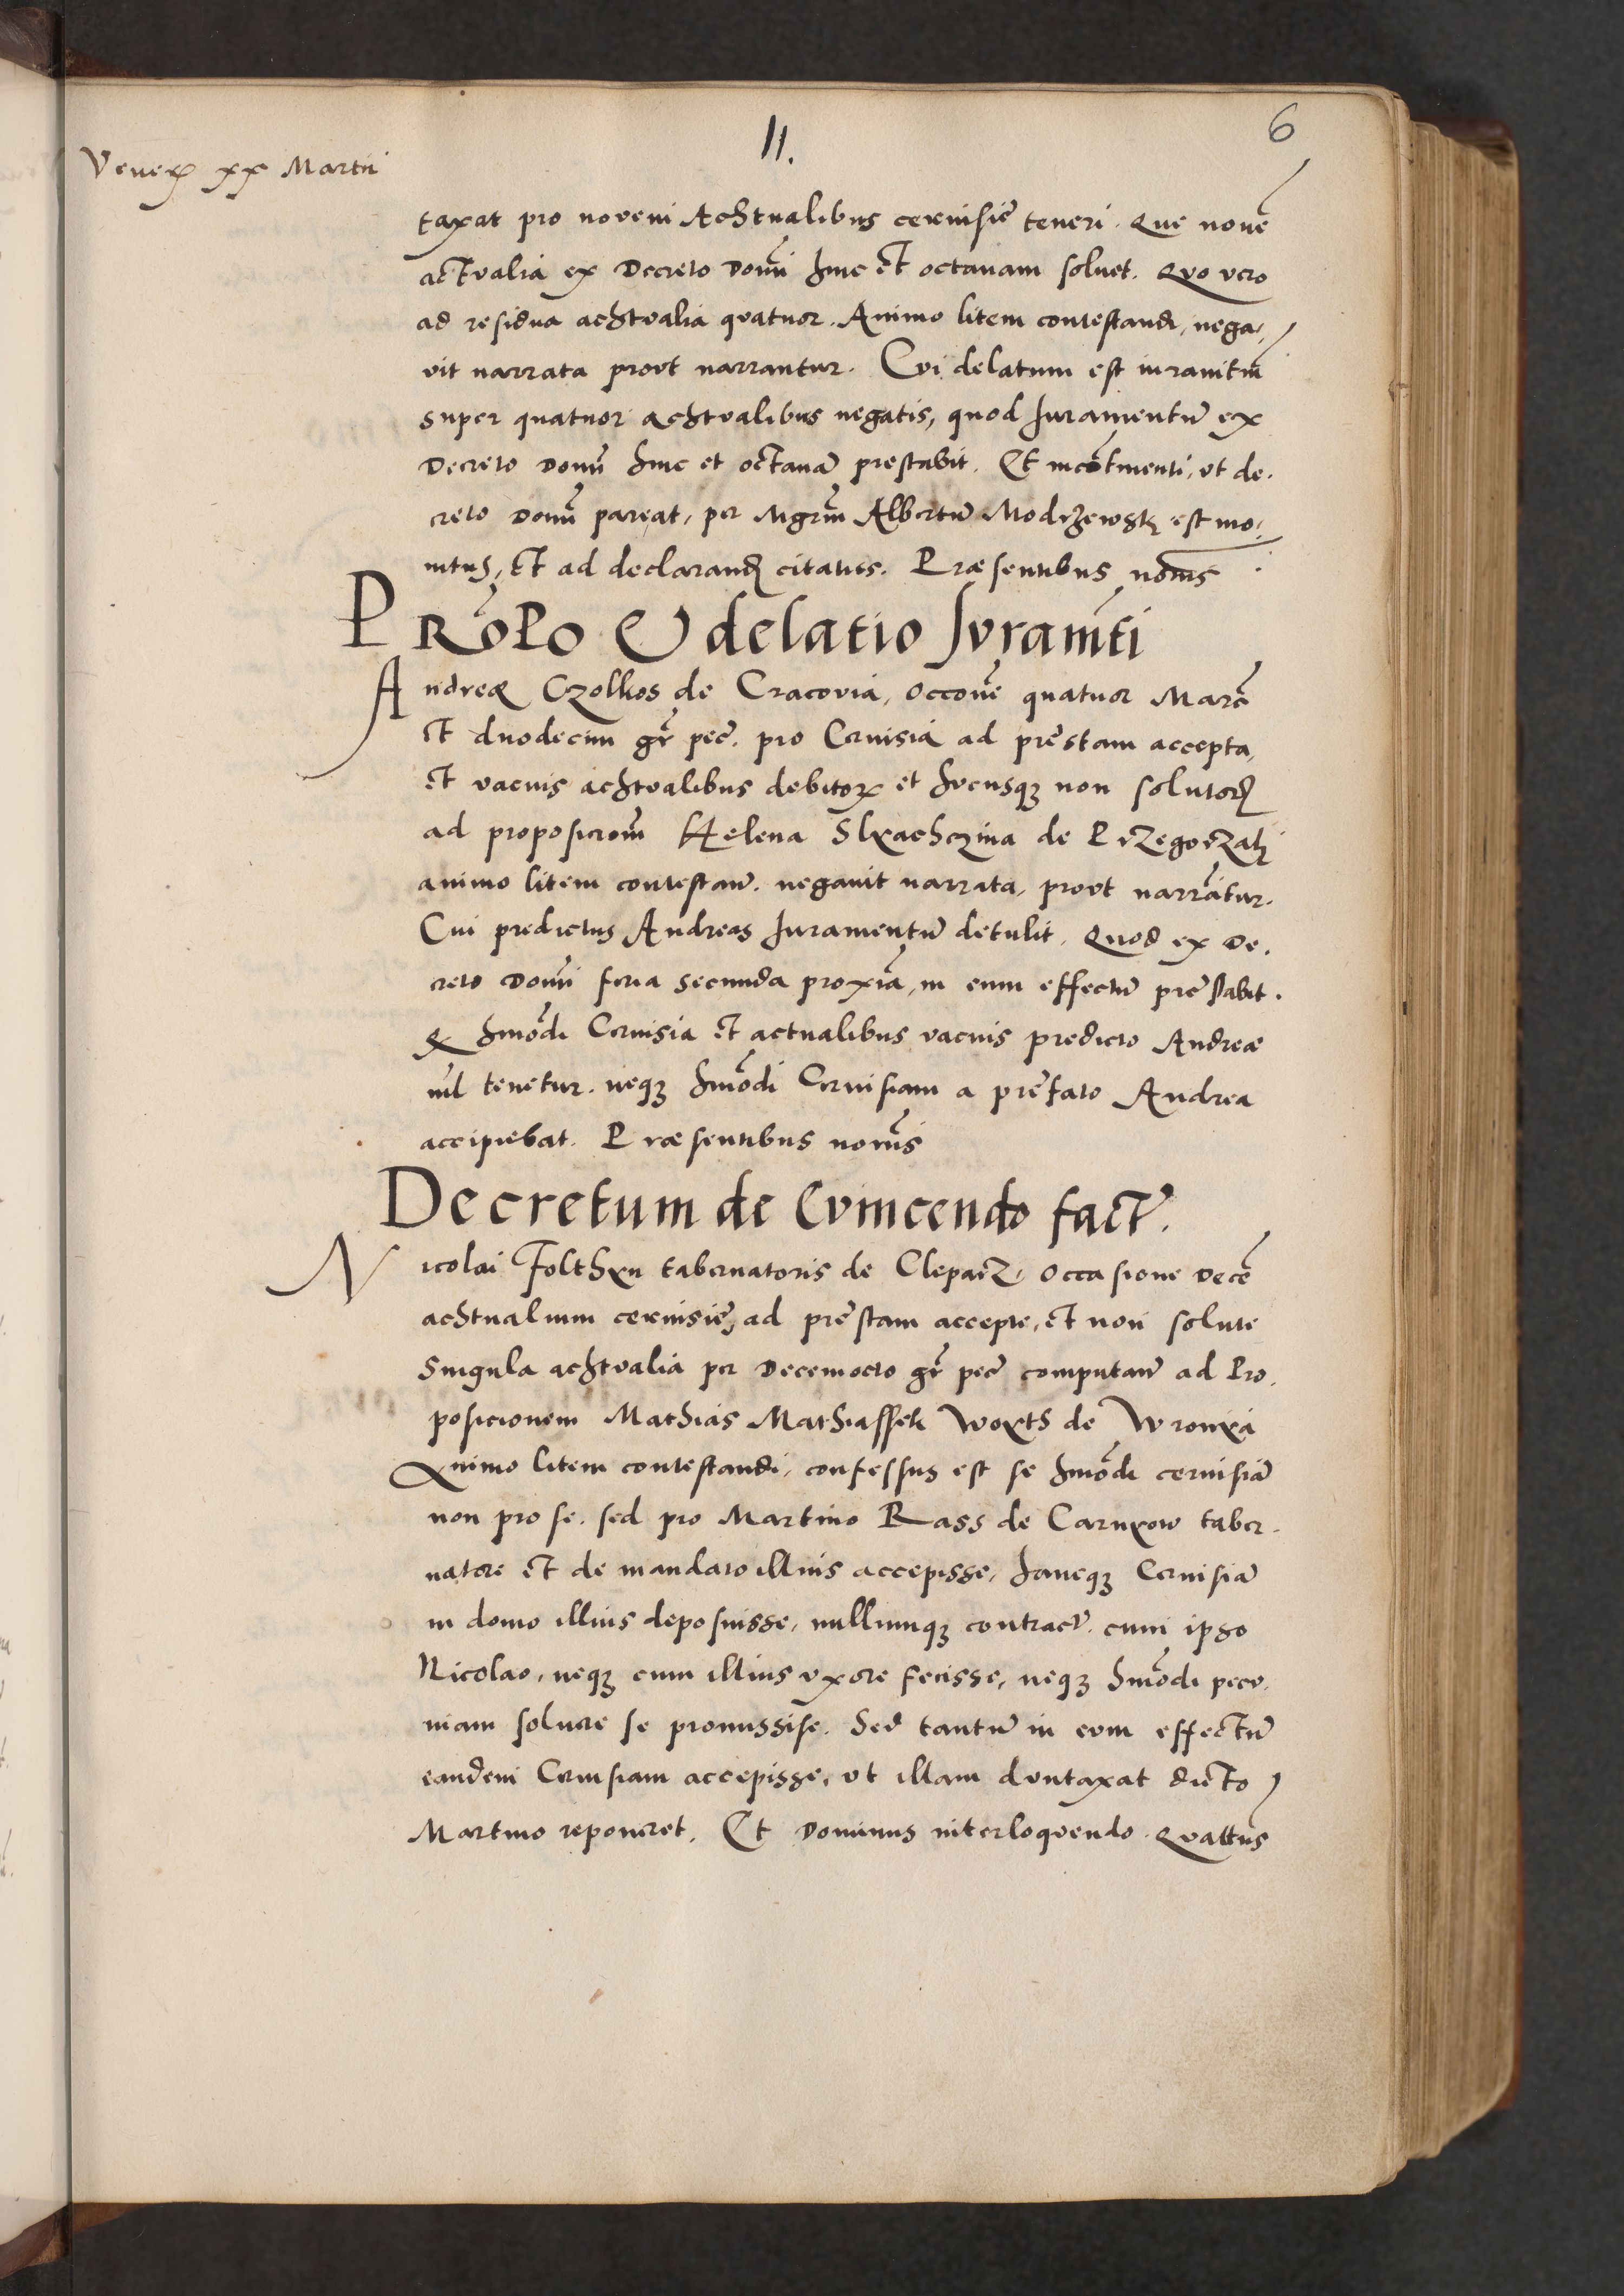 11.
6
Vener xx Martii
taxat pro novem Achtualibus cervisiē teneri. Que novē
actvalia ex Decreto Domī hinc et octavam solvet. Qvo vero
ad residva achtvalia qvatuor. Animo litem contestandi, nega,
vit narrata provt narrantur. Cvi delatum est iuramtū
super quatuor achtvalibus negatis, quod Juramentū ex
Decreto Domī hinc et octavā prestabit. Et incōtinenti, vt de.
creto Domī pareat, per Mgrm̄ Albertū Modrzewsky est mo,
nitus, Et ad declarand citatus. Præsentibus nōms
PRōPO & delatio Jvram̄ti
Andreæ Czolkos de Cracovia, occōne quatuor Marc̄
et duodecim gr̄ pec̄. pro Cervisia ad prēstam accepta,
et vacuis achtvalibus debitorx et hvcusqz non solutorx
ad proposicionm̄ Helena Slxachczina de Przegorzaly
animo litem contestan̄. negavit narrata, provt narrātur.
Cui predictus Andreas Juramentū detulit. Quod ex De.
creto Domī feria secunda proxīa, in eum effectū prēstabit.
Q hmōdi Cervisia et actualibus vacuis predicto Andreæ
nil tenetur. neqz hmōdi Cervisiam a prēfato Andrea
accipiebat. Præsentibus noīms
Decretum de Evincendo fact̄.
Nicolai Folthxn tabernatoris de Cleparz, Occasione Decē
achtualium cervisiē, ad prēstam accepte, et non solute
Singula achtvalia per Decemocto gr̄ pec̄ computan̄ ad Pro,
posicionem Mathias Mathiassek Woxth de Wronxa
Animo litem contestandi, confessus est se hmōdi cervisiā
non pro se. sed pro Martino Rass de Carnxow taber.
natore et de mandato illius accepisse, hancqz Cervisiā
in domo illius deposuisse, nullumqz contract̄. cum ipso
Nicolao, neqz cum illius vxore fecisse, neqz hmōdi pecu,
niam solvere se promississe. Sed tantū in eum effectū
eandem Cervisiam accepisse, vt illam dvntaxat dicto
Martino reponeret. Et Dominus interloqvendo. Qvattus